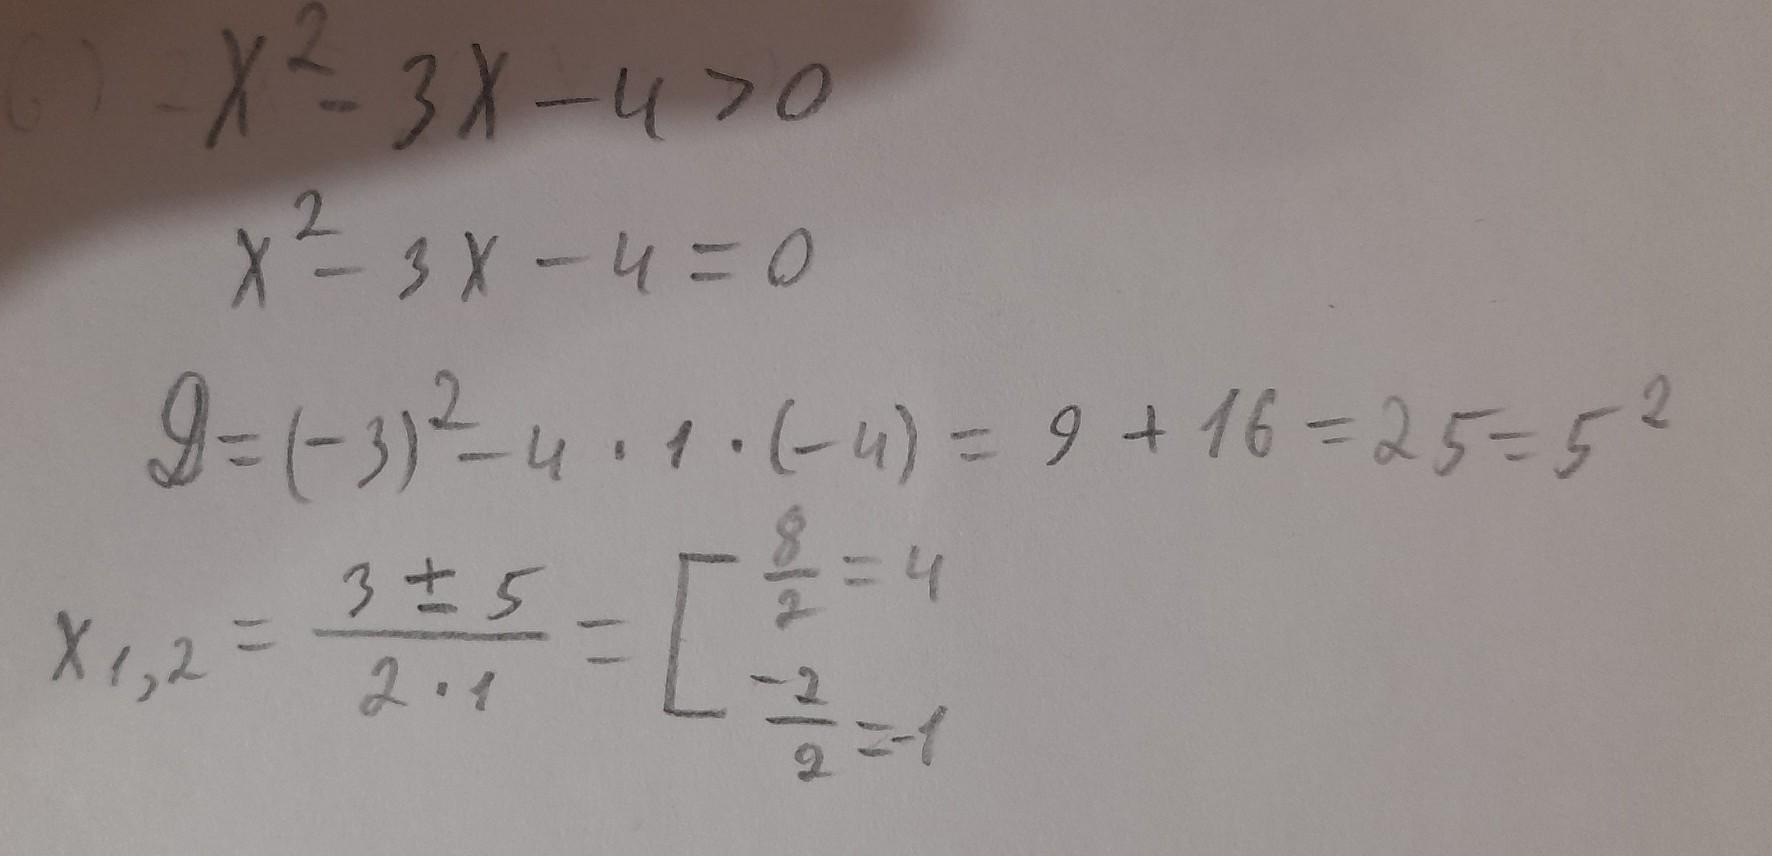 x² - 3x - 4 > 0
x² - 3x - 4 = 0
D = (-3)² - 4 · 1 · (-4) = 9 + 16 = 25 = 5²
x₁,₂ = (3 ± 5)/(2 · 1) = [ 8/2 = 4
-2/2 = -1